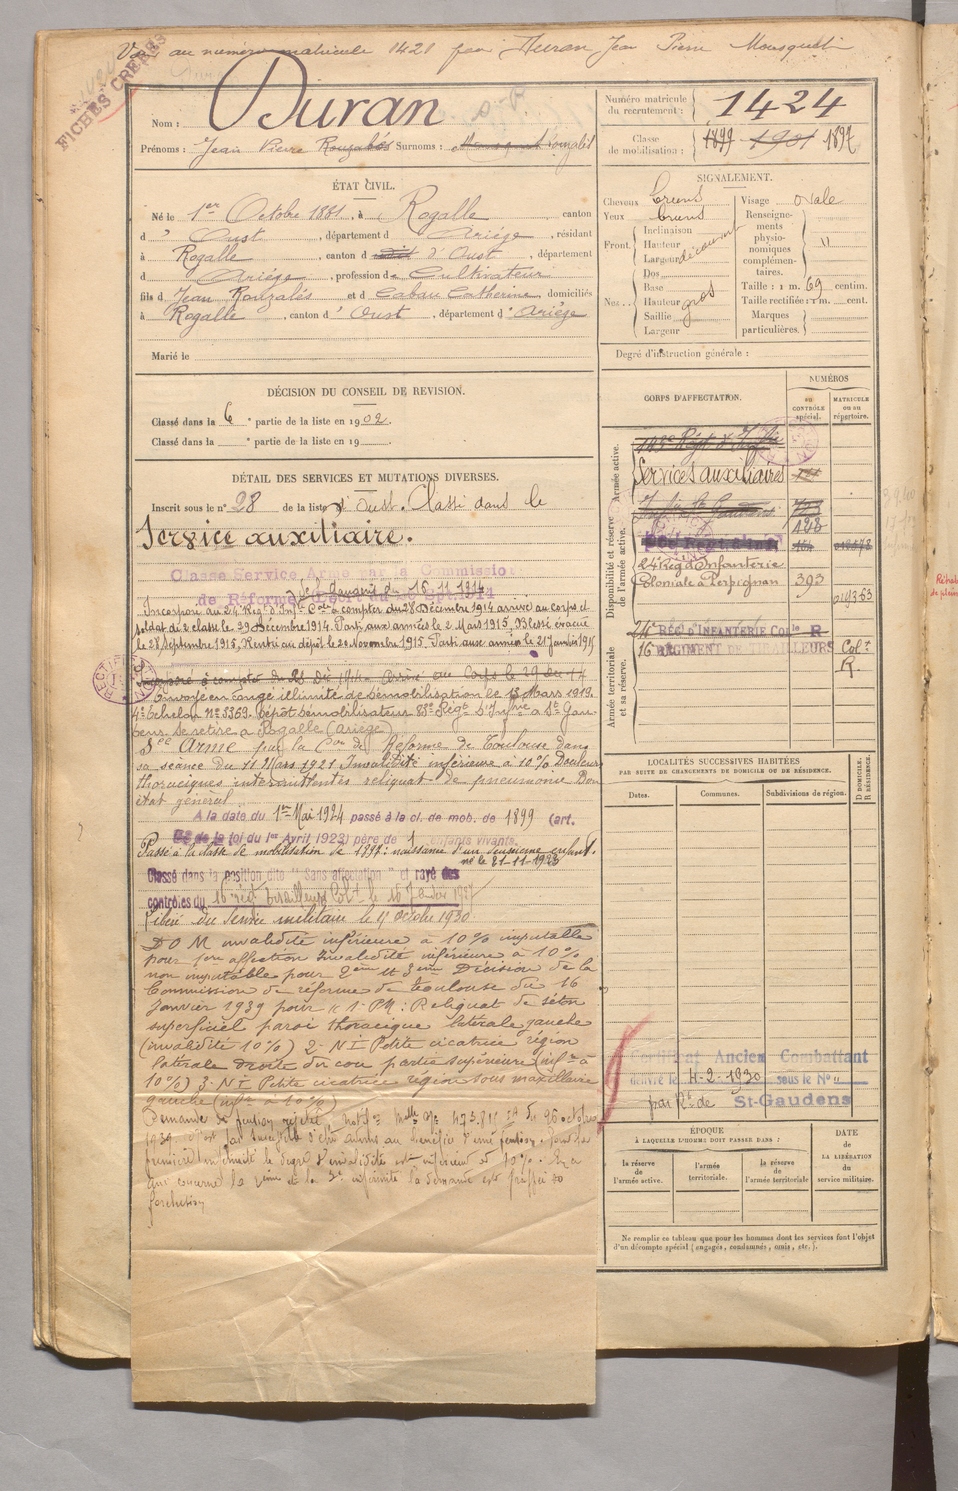 au numéro matricule 1421 pour Duran Jean Pierre Mousquet
FICHES CREEES
Nom : Duran
Prénoms : Jean Pierre Rouzalés Surnoms :
Numéro matricule du recrutement : 1424
Classe de mobilisation : 1899 1901 1897
ÉTAT CIVIL.
Né le 1er Octobre 1881, à Rogalle, canton
d' Oust, département d Ariége, résidant
à Rogalle, canton d' Oust, département
d Ariége, profession de Cultivateur
fils d Jean Rouzalés et d Cabau Catherine, domiciliés
à Rogalle, canton d' Oust, département d' Ariége
Marié le
SIGNALEMENT.
Cheveux bruns
Yeux bruns
Front. Inclinaison
Hauteur
Largeur découvert
Nez... Dos
Base
Hauteur gros
Saillie
Largeur
Visage ovale
Renseignements physionomiques complémentaires. "
Taille : 1 m. 69 centim.
Taille rectifiée : 1 m. cent.
Marques particulières.
Degré d'instruction générale :
DÉCISION DU CONSEIL DE REVISION.
Classé dans la 6e partie de la liste en 1902.
Classé dans la e partie de la liste en 19
DÉTAIL DES SERVICES ET MUTATIONS DIVERSES.
Inscrit sous le n° 28 de la liste d'Oust. Classé dans le
Service auxiliaire.
Classé Service Armé par la Commission
de Réforme
Incorporé au 24e Rég. d'Inf. Cole à compter du 28 Décembre 1914 arrivé au Corps et
soldat de 2e classe le 29 Décembre 1914. Parti aux armées le 2 Mars 1915, Blessé évacué
le 28 Septembre 1915, Rentré au dépôt le 20 Novembre 1915. Parti aux armées le 21 Janvier 1916
RECTIFICATION
Envoyé en congé illimité de démobilisation le 13 Mars 1919.
4e Echelon N° 3369. Dépôt démobilisateur 83e Régt d'Infrie à St Gaudens
Se retire à Rogalle (Ariège)
Sce Armé par la Con de Réforme de Toulouse dans
sa séance du 11 Mars 1921 Invalidité inférieure à 10% Douleurs
thoraciques intermittentes reliquat de pneumonie Bon
état général
A la date du 1er Mai 1924 passé à la cl. de mob. de 1899 (art.
de la loi du 1er Avril 1923) père de 1 enfants vivants.
Passé à la classe de mobilisation de 1897 : naissance d'un deuxième enfant.
né le 21-11-1923
Classé dans la position dite "Sans affectation" et rayé des
contrôles du 16 régt tirailleurs Colx le
Libéré du service militaire le Octobre 1930
D O M invalidité inférieure à 10% imputable
pour 1ère affection Invalidité inférieure à 10%
non imputable pour 2ème et 3ème Décision de la
Commission de réforme de Toulouse du 16
Janvier 1939 pour "1- PR : Reliquat de séton
superficiel paroi thoracique latérale gauche
(invalidité 10%) 2- N I Petite cicatrice région
latérale droite du cou partie supérieure (infre à
10%) 3- N I Petite cicatrice région sous maxillaire
gauche (infre à 10%)
Demande de pension rejetée
première infirmité le degré d'invalidité est inférieur à 10%. En ce
qui concerne la 2ème et la 3e infirmité la demande est frappée de
forclusion
CORPS D'AFFECTATION.
NUMÉROS
AU CONTRÔLE SPÉCIAL.
MATRICULE ou au répertoire.
Armée active.
Services auxiliaires
Disponibilité et réserve de l'armée active.
128
24e Rég. d'Infanterie
Coloniale à Perpignan 393
Armée territoriale et sa réserve.
24e RÉG. D'INFANTERIE Colle R
16 RÉGIMENT DE TIRAILLEURS Colx R.
LOCALITÉS SUCCESSIVES HABITÉES
PAR SUITE DE CHANGEMENTS DE DOMICILE OU DE RÉSIDENCE.
Dates.
Communes.
Subdivisions de région.
D DOMICILE. R RÉSIDENCE.
Certificat Ancien Combattant
délivré le 4-2-1930 sous le N° "
par Rt de St-Gaudens
ÉPOQUE
À LAQUELLE L'HOMME DOIT PASSER DANS :
la réserve de l'armée active.
l'armée territoriale.
la réserve de l'armée territoriale
DATE de LA LIBÉRATION du service militaire.
Ne remplir ce tableau que pour les hommes dont les services font l'objet
d'un décompte spécial (engagés, condamnés, omis, etc.).